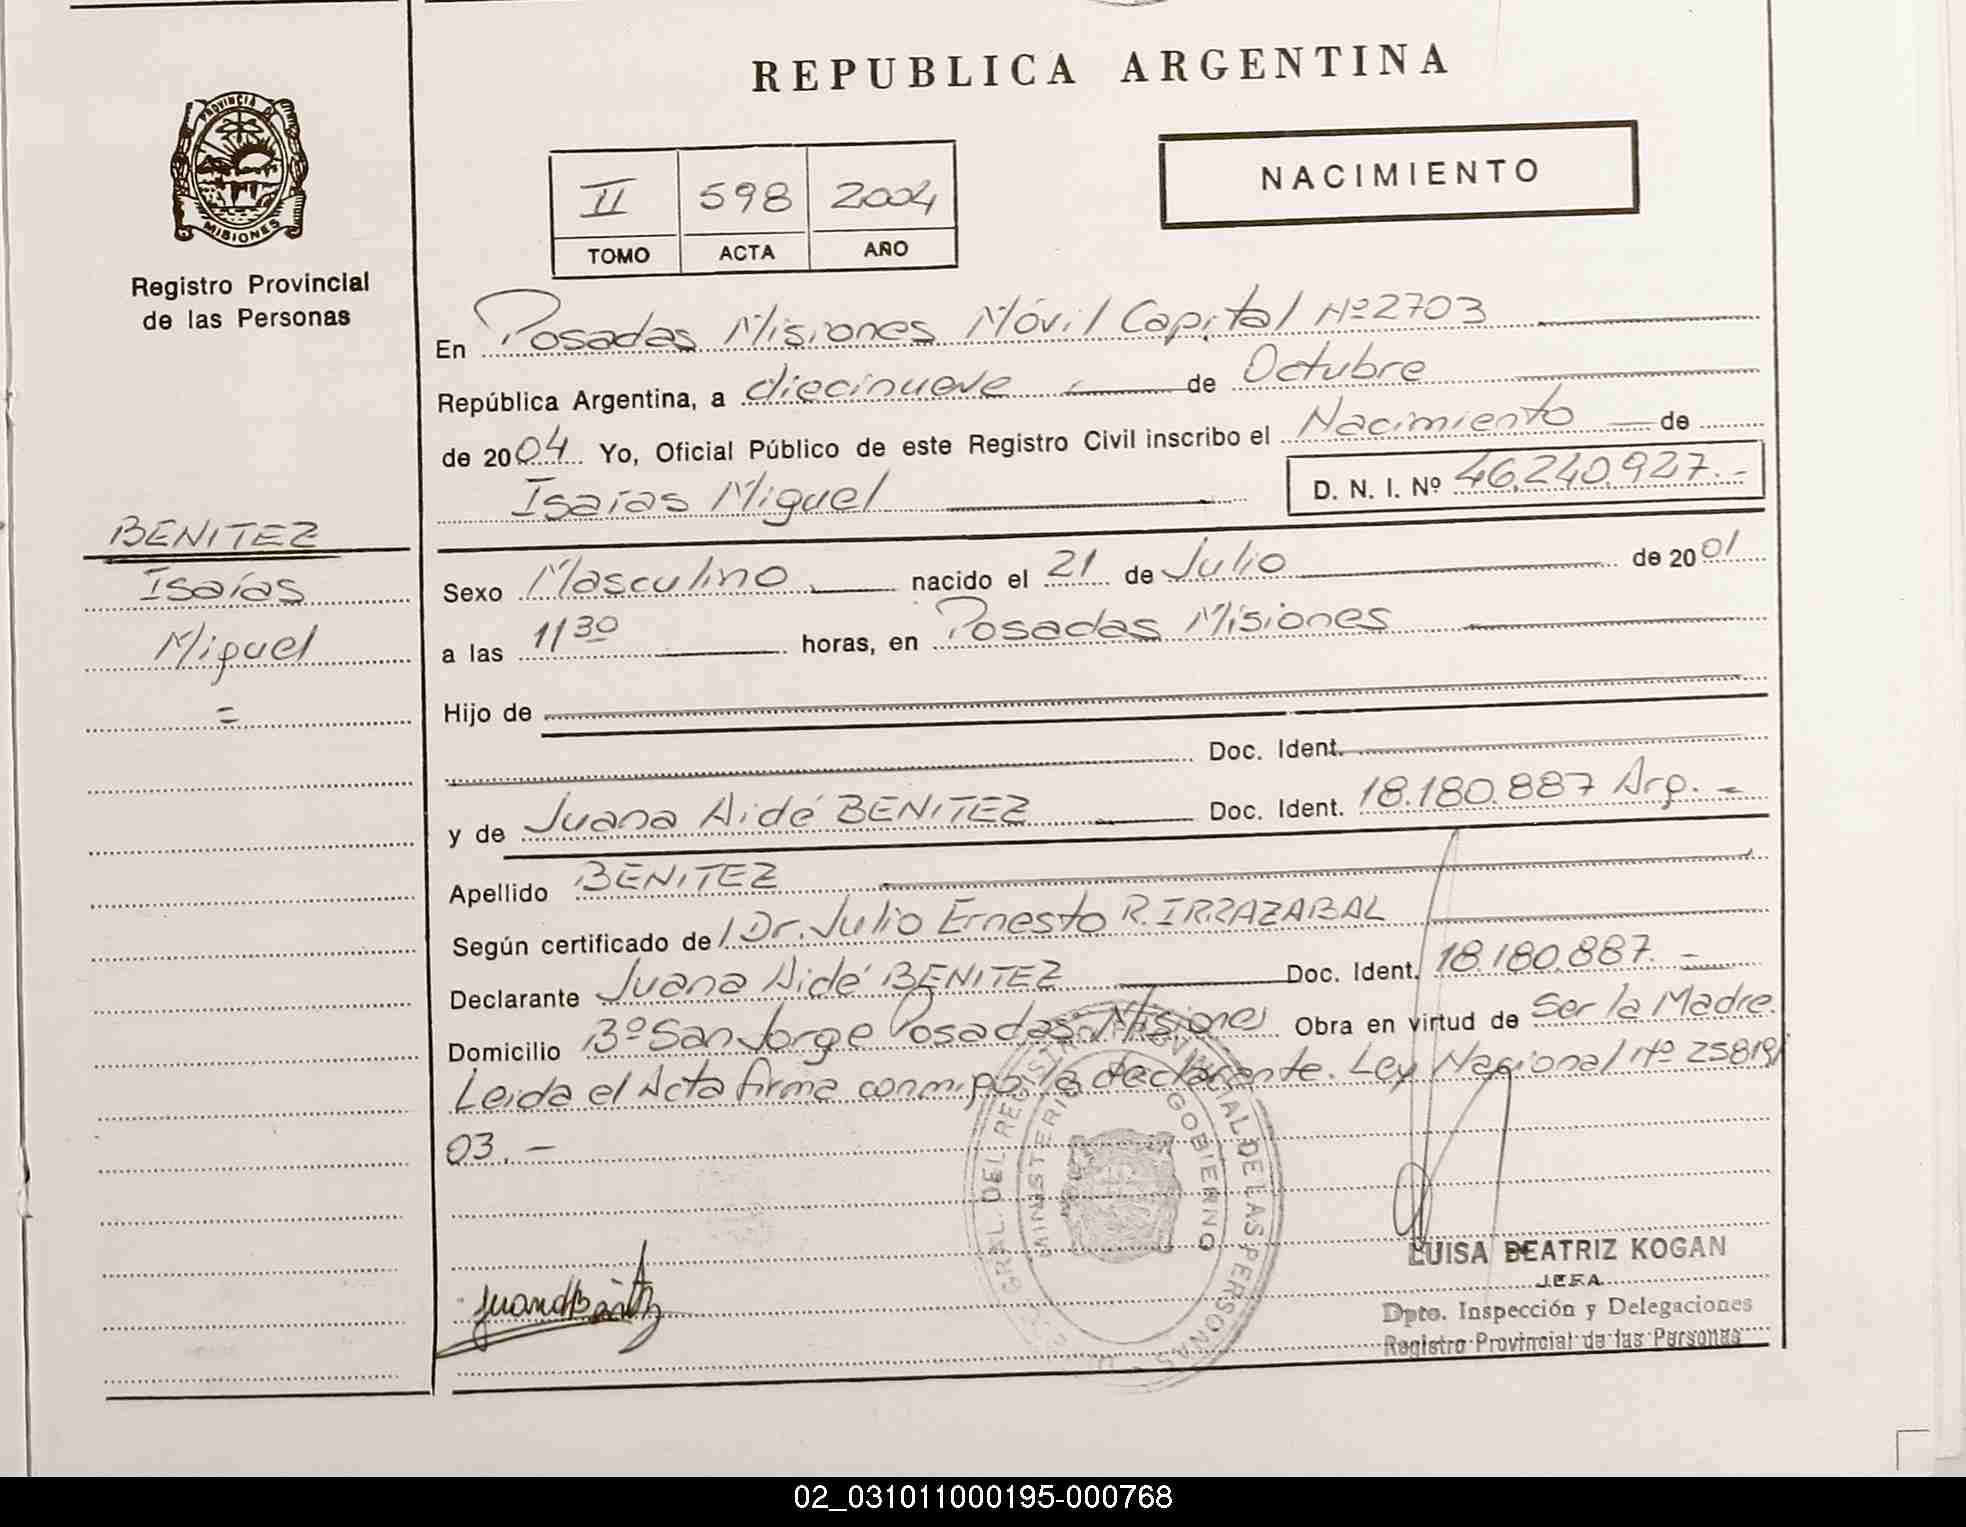 REPUBLICA ARGENTINA
PROVINCIA DE
MISIONES
Registro Provincial
de las Personas
II 598 2004
TOMO ACTA AÑO
NACIMIENTO
En Posadas Misiones Móvil Capital Nº 2703
República Argentina, a diecinueve de Octubre
de 2004 Yo, Oficial Público de este Registro Civil inscribo el Nacimiento de
Isaías Miguel D. N. I. Nº 46.240.927.-
BENITEZ
Isaías
Miguel
=
Sexo Masculino nacido el 21 de Julio de 2001
a las 11 30 horas, en Posadas Misiones
Hijo de
Doc. Ident.
y de Juana Aidé BENITEZ Doc. Ident. 18.180.887 Arg. -
Apellido BENITEZ
Según certificado de Dr. Julio Ernesto R. IRRAZABAL
Declarante Juana Aidé BENITEZ Doc. Ident. 18.180.887. -
Domicilio Bº San Jorge Posadas Misiones Obra en virtud de Ser la Madre.
Leida el Acta firma conmigo la declarante. Ley Nacional Nº 25819/
03. -
GRAL. DEL REGISTRO PROVINCIAL DE LAS PERSONAS
MINISTERIO GOBIERNO
Juana Benitez
LUISA BEATRIZ KOGAN
JEFA
Dpto. Inspección y Delegaciones
Registro Provincial de las Personas
02_031011000195-000768